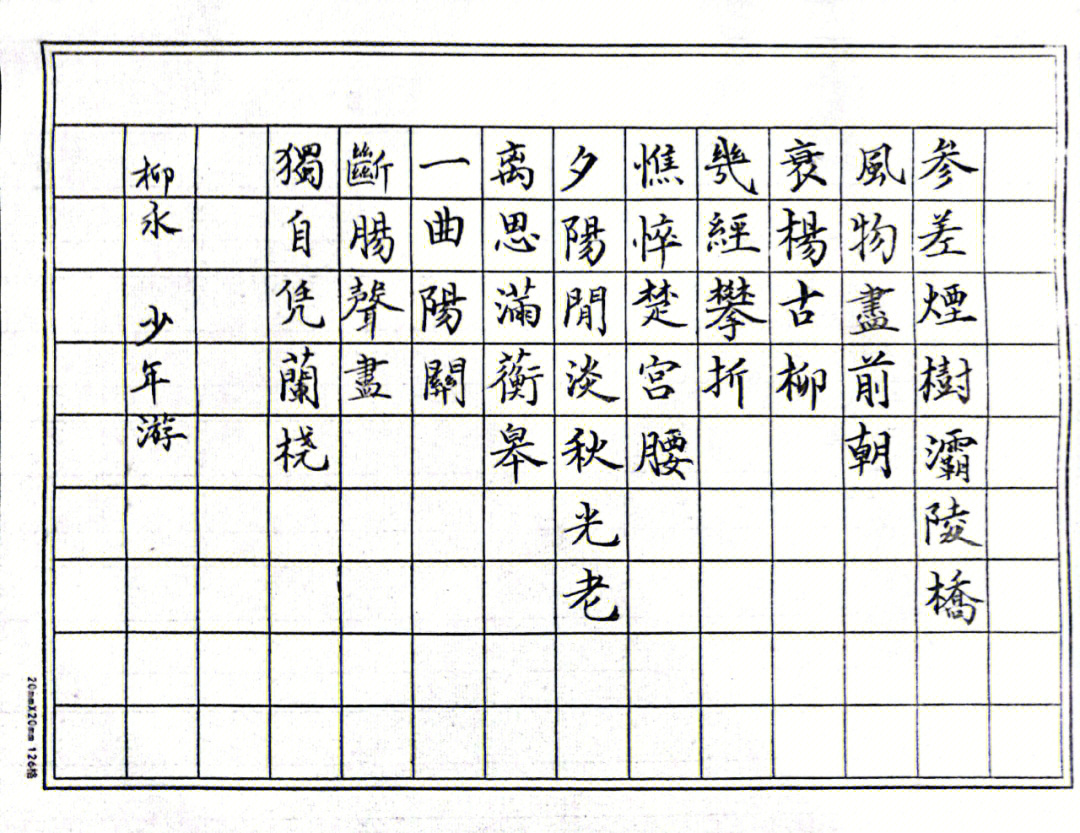 參差煙樹灞陵橋
風物盡前朝
衰楊古柳
幾經攀折
憔悴楚宮腰
夕陽閒淡秋光老
离思滿蘅皋
一曲陽關
斷腸聲盡
獨自凭蘭桡
柳永 少年游
20mmX20mm 126格